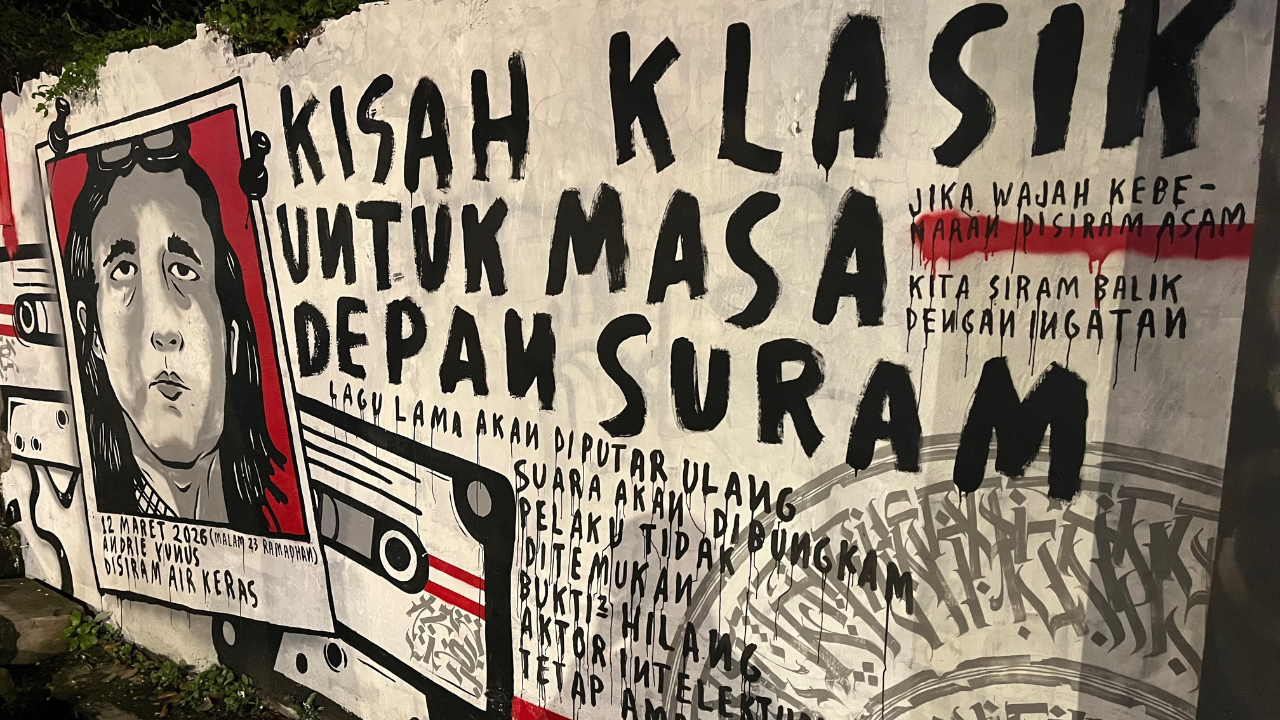 KISAH KLASIK
UNTUK MASA
DEPAN SURAM
JIKA WAJAH KEBE-
NARAN DISIRAM ASAM
KITA SIRAM BALIK
DENGAN INGATAN
LAGU LAMA AKAN DIPUTAR ULANG
SUARA AKAN DIBUNGKAM
PELAKU TIDAK
DITEMUKAN
BUKTI2 HILANG
AKTOR INTELEKTU
TETAP
12 MARET 2026 (MALAM 23 RAMADHAN)
ANDRIE YUNUS
DISIRAM AIR KERAS